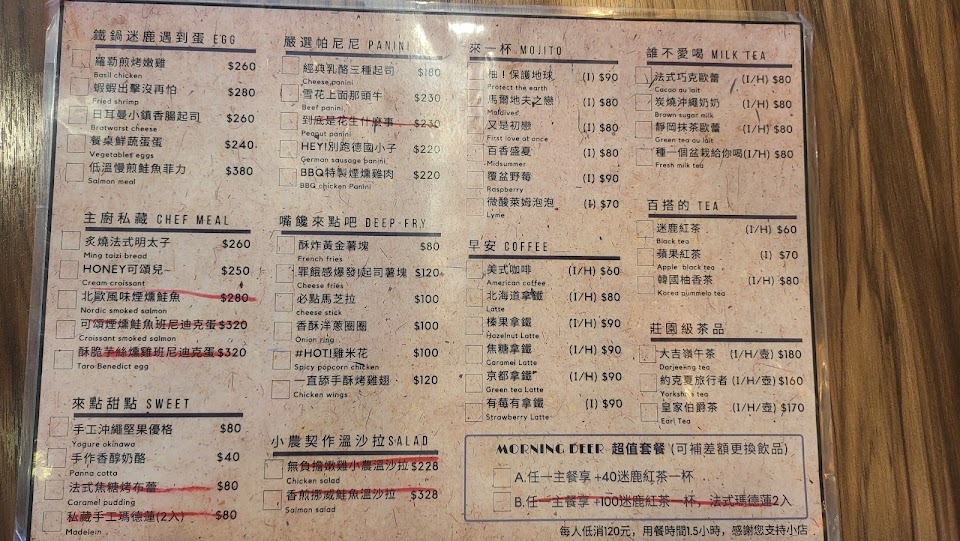 鐵鍋迷鹿遇到蛋 EGG
羅勒煎烤嫩雞 $260
Basil chicken
蝦蝦出擊沒再怕 $280
Fried shrimp
日耳曼小鎮香腸起司 $260
Bratwarst cheese
餐桌鮮蔬蛋蛋 $240
Vegetables eggs
低溫慢煎鮭魚菲力 $380
Salmon meal
主廚私藏 CHEF MEAL
炙燒法式明太子 $260
Ming taizi bread
HONEY可頌兒~ $250
Cream croissant
北歐風味煙燻鮭魚 $280
Nordic smoked salmon
可頌煙燻鮭魚班尼迪克蛋 $320
Croissant smoked salmon
酥脆芋絲燻雞班尼迪克蛋 $320
Taro Benedict egg
來點甜點 SWEET
手工沖繩堅果優格 $80
Yogure okinawa
手作香醇奶酪 $40
Panna cotta
法式焦糖烤布蕾 $80
Caramel pudding
私藏手工瑪德蓮(2入) $80
Madelein
嚴選帕尼尼 PANINI
經典乳酪三種起司 $180
Cheese panini
雪花上面那頭牛 $230
Beef panini
到底是花生什麼事 $230
Peanut panini
HEY!別跑德國小子 $220
German sausage panini
BBQ特製煙燻雞肉 $220
BBQ chicken Panini
嘴饞來點吧 DEEP-FRY
酥炸黃金薯塊 $80
French fries
罪餓感爆發!起司薯塊 $120
Cheese fries
必點馬芝拉 $100
cheese stick
香酥洋蔥圈圈 $100
Onion ring
#HOT!雞米花 $100
Spicy popcorn chicken
一直舔手酥烤雞翅 $120
Chicken wings
小農契作溫沙拉SALAD
無負擔嫩雞小農溫沙拉 $228
Chicken salad
香煎挪威鮭魚溫沙拉 $328
Salmon salad
來一杯 MOJITO
柚!保護地球 (I) $90
Protect the earth
馬爾地夫之戀 (I) $80
Maldives
又是初戀 (I) $80
First love at once
百香盛夏 (I) $80
Midsummer
覆盆野莓 (I) $90
Raspberry
微酸萊姆泡泡 (I) $70
Lyme
早安 COFFEE
美式咖啡 (I/H) $60
American coffee
北海道拿鐵 (I/H) $80
Latte
榛果拿鐵 (I/H) $90
Hazelnut Latte
焦糖拿鐵 (I/H) $90
Caramel Latte
京都拿鐵 (I/H) $90
Green tea Latte
有莓有拿鐵 (I) $90
Strawberry Latte
誰不愛喝 MILK TEA
法式巧克歐蕾 (I/H) $80
Cacao au lait
炭燒沖繩奶奶 (I/H) $80
Brown sugar milk
靜岡抹茶歐蕾 (I/H) $80
Green tea au lait
種一個盆栽給你喝(I/H) $80
Fresh milk tea
百搭的 TEA
迷鹿紅茶 (I/H) $60
Black tea
蘋果紅茶 (I) $70
Apple black tea
韓國柚香茶 (I/H) $80
Korea pummelo tea
莊園級茶品
大吉嶺午茶 (I/H/壺) $180
Darjeeng tea
約克夏旅行者 (I/H/壺) $160
Yorkshire tea
皇家伯爵茶 (I/H/壺) $170
Earl Tea
MORNING DEER 超值套餐 (可補差額更換飲品)
A.任一主餐享 +40迷鹿紅茶一杯
B.任一主餐享 +100迷鹿紅茶一杯，法式瑪德蓮2入
每人低消120元，用餐時間1.5小時，感謝您支持小店